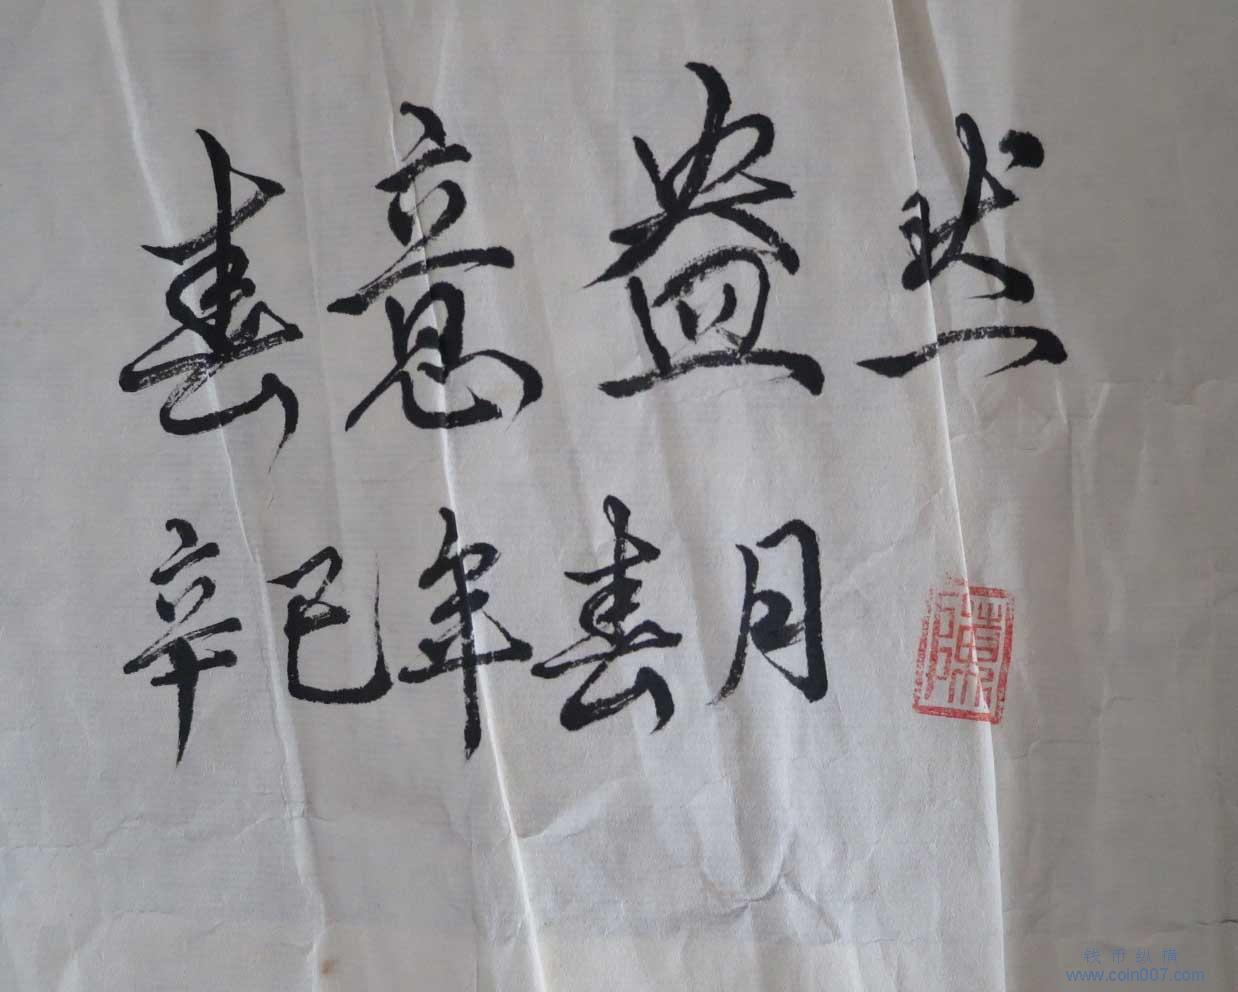 春意盎然
辛巳年春月
钱币纵横
www.coin007.com